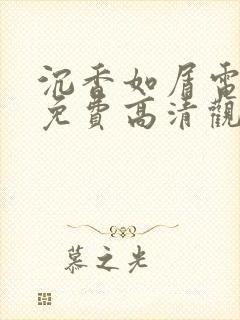 沉香如屑電
免費高清觀
慕之光